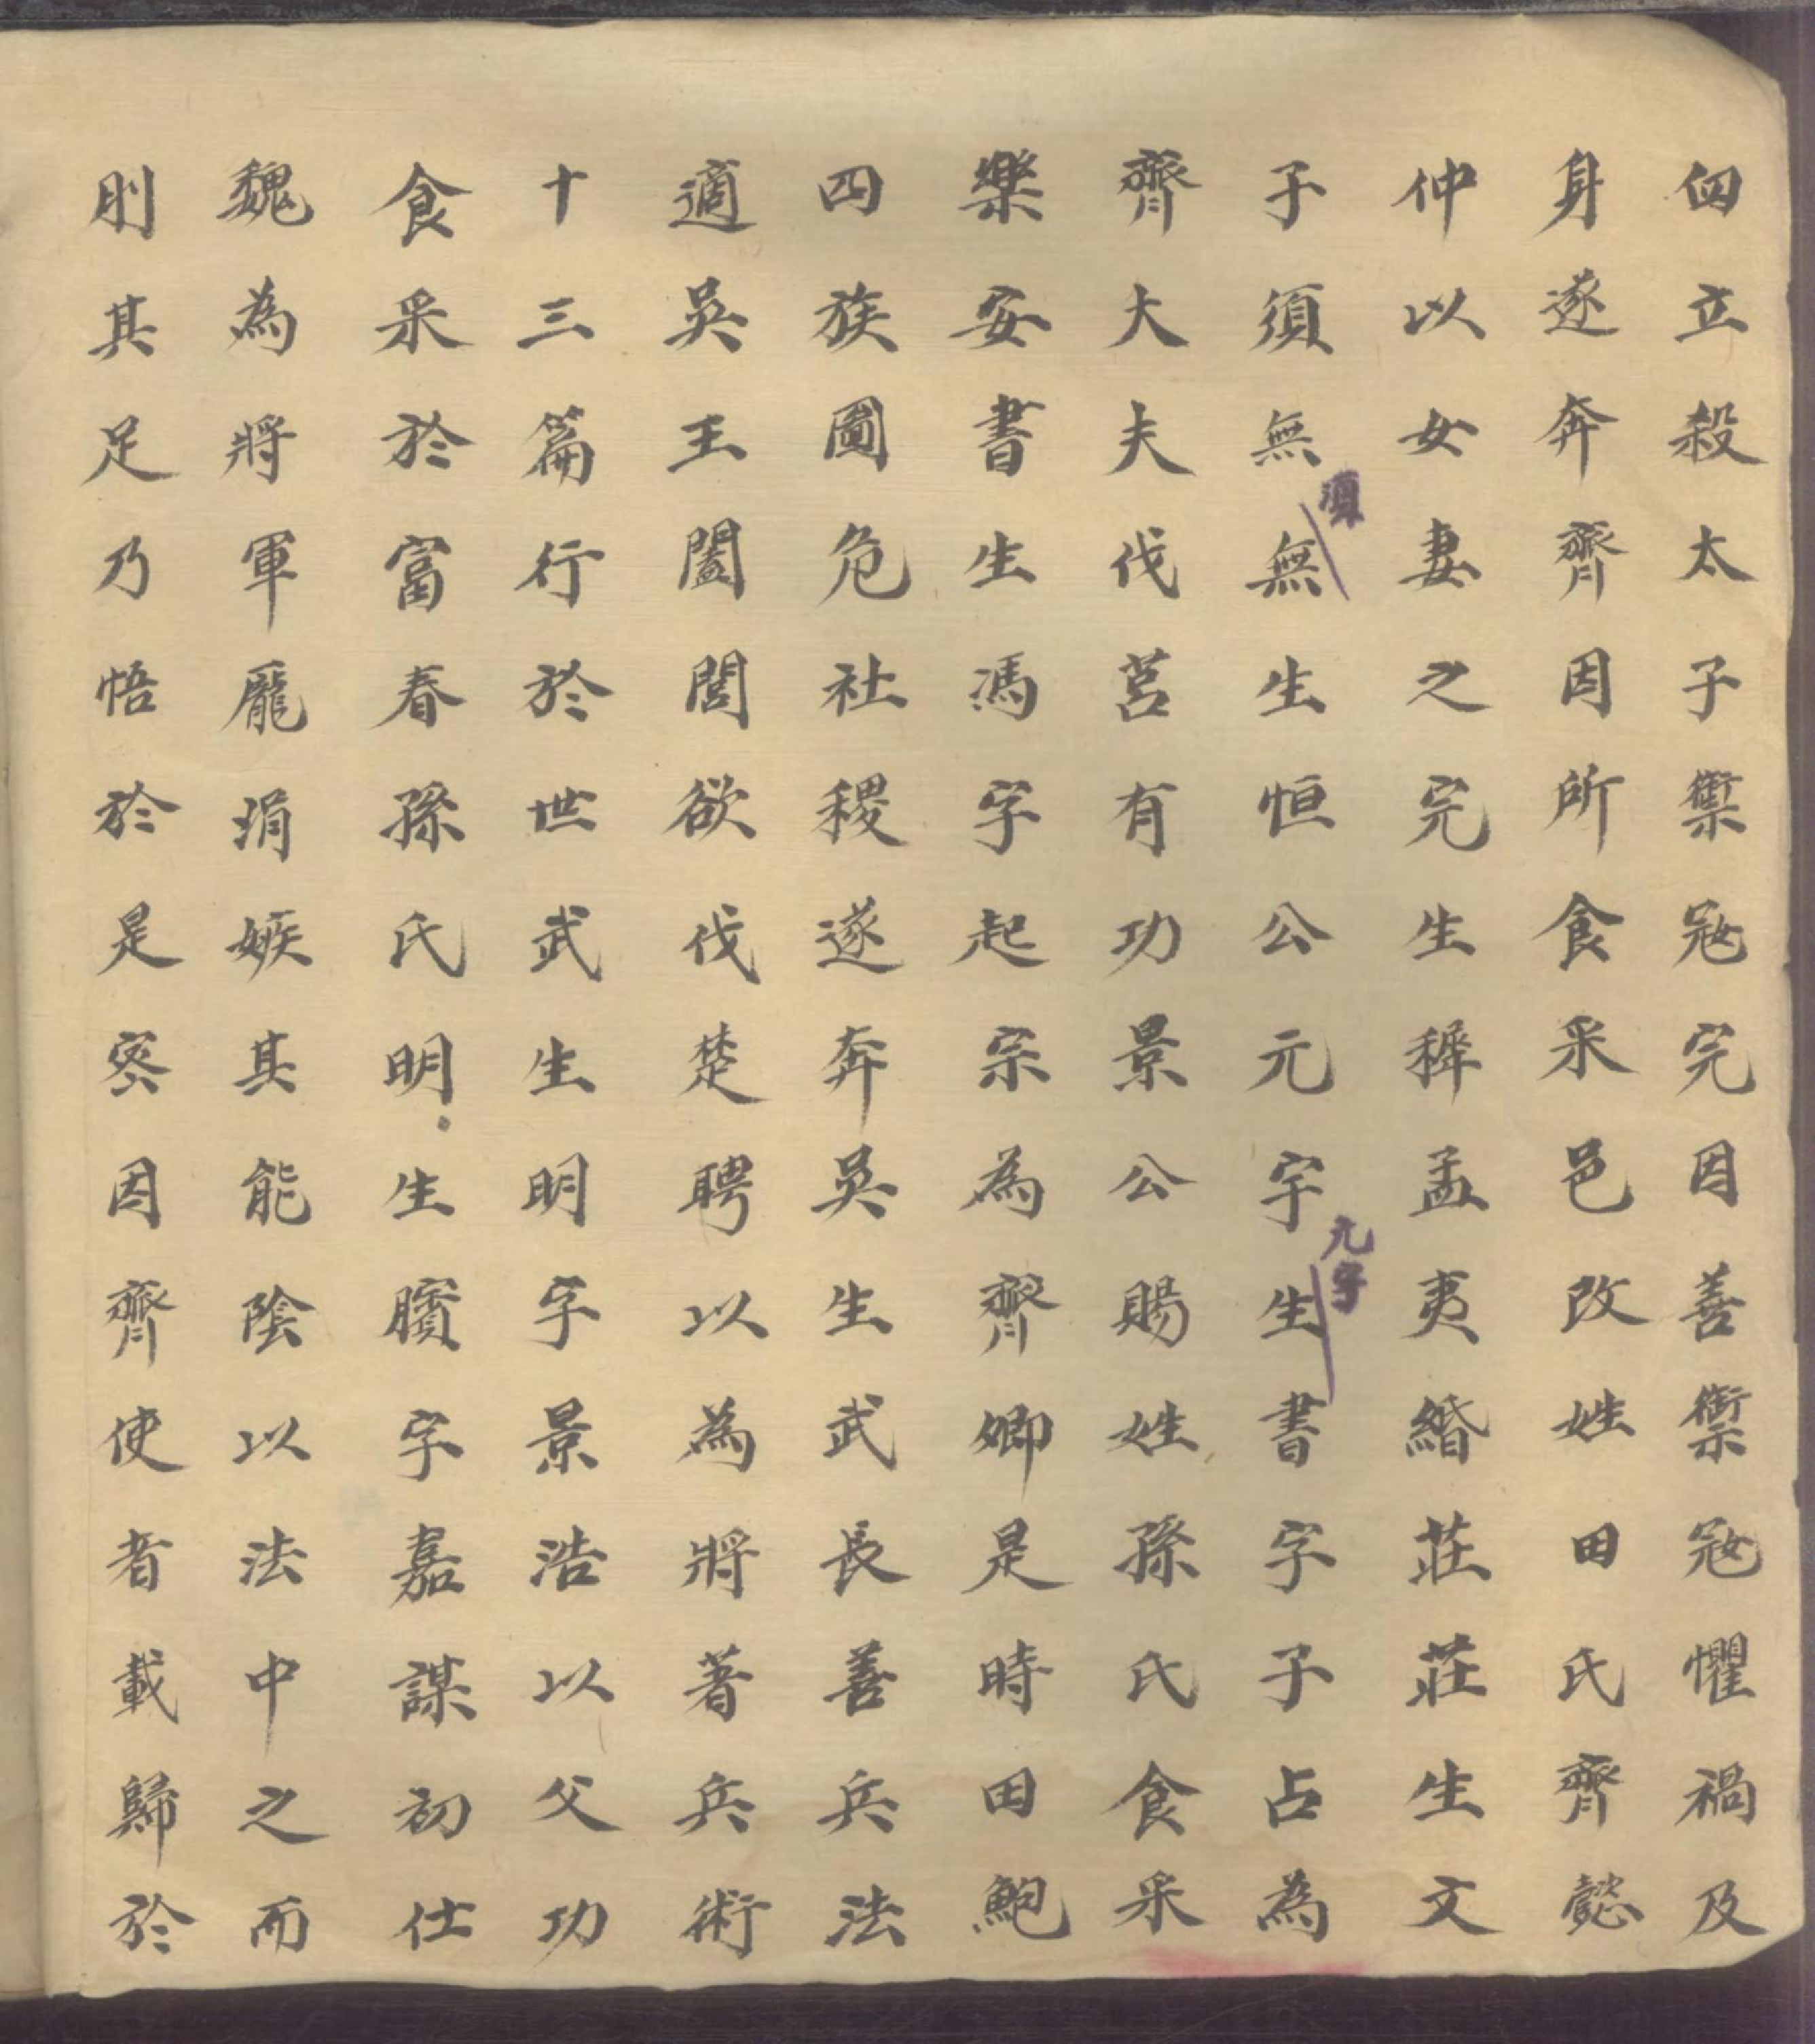 伵立殺太子禦寇完因善禦寇懼禍及
身遂奔齊因所食采邑改姓田氏齊懿
仲以女妻之完生穉孟夷緡莊莊生文
子須無無生恒公元宇生書字子占為
須
元字
齊大夫伐莒有功景公賜姓孫氏食采
樂安書生馮字起宗為齊卿是時田鮑
四族圖危社稷遂奔吳生武長善兵法
適吳王闔閭欲伐楚聘以為將著兵術
十三篇行於世武生明字景浩以父功
食采於富春孫氏明生臏字嘉謀初仕
魏為將軍龐涓嫉其能陰以法中之而
刖其足乃悟於是密因齊使者載歸於